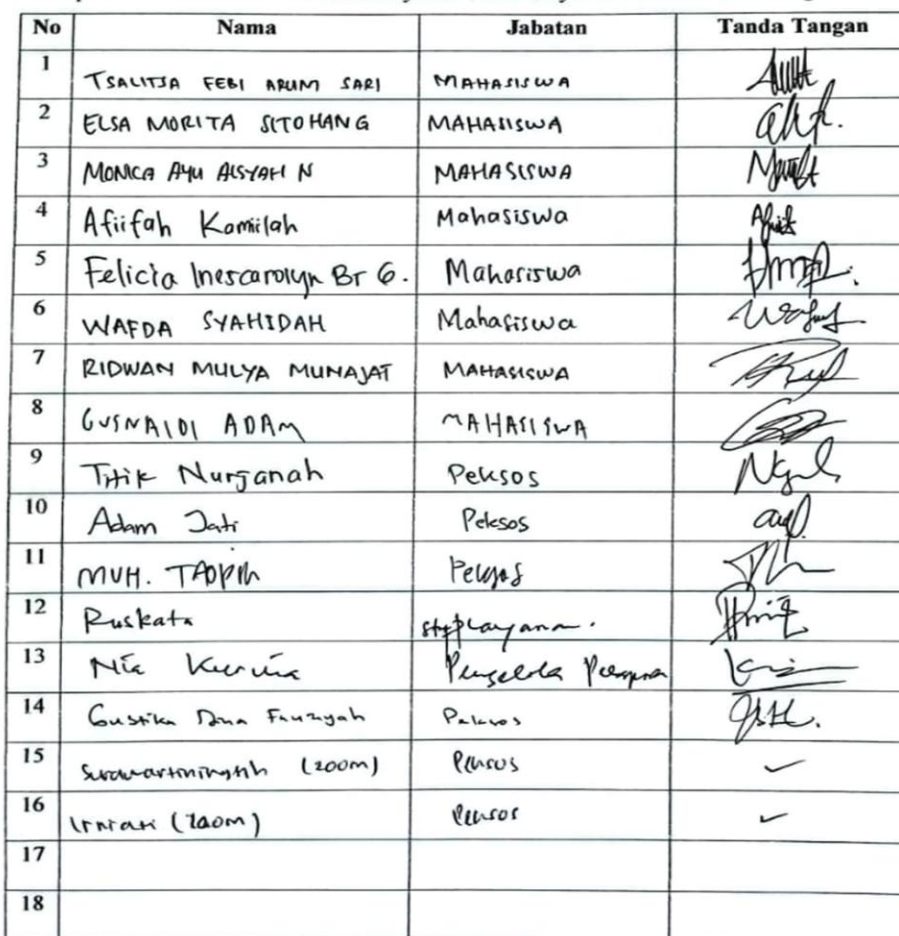 No Nama Jabatan Tanda Tangan
1 TSALITSA FEBI ARUM SARI MAHASISWA
2 ELSA MORITA SITOHANG MAHASISWA
3 MONICA AYU AISYAH N MAHASISWA
4 Afiifah Kamilah Mahasiswa
5 Felicia Inescarolyn Br G. Mahasiswa
6 WAFDA SYAHIDAH Mahasiswa
7 RIDWAN MULYA MUNAJAT MAHASISWA
8 GUSNAIDI ADAM MAHASISWA
9 Titik Nurjanah Peksos
10 Adam Jati Peksos
11 MUH. TAOPIK Peksos
12 Ruskata
13 Nia Kurnia Pengelola
14 Gustika Fauziyah Peksos
15 (zoom) Peksos
16 (zoom) Peksos
17
18